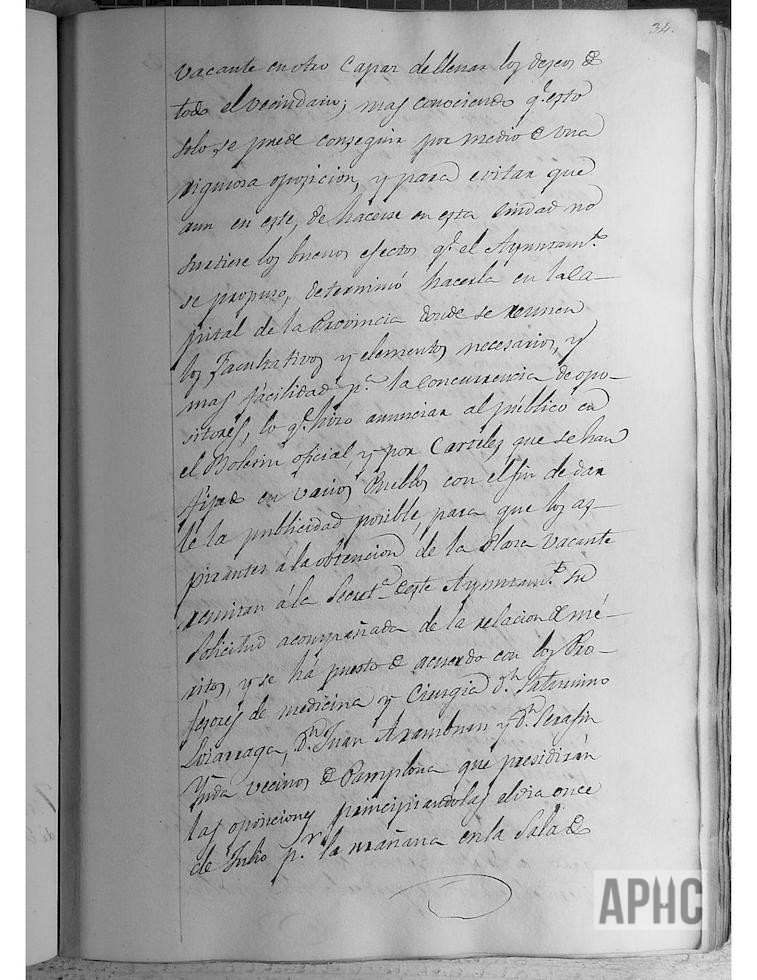 34.
vacante en otro capaz de llenar los deseos de
todo el vecindario; mas conociendo q.e esto
solo se puede conseguir por medio de una
rigurosa oposicion, y para evitar que
aun en este, de hacerse en esta Ciudad no
surtiere los buenos efectos q.e el Ayuntam.to
se propuso, determinó hacerla en la Ca-
pital de la Provincia donde se reunen
los Facultativos y elementos necesarios, y
mas facilidad p.a la concurrencia de opo-
sitores, lo q.e hizo anunciar al público en
el Boletin oficial y por Carteles que se han
fijado en varios Pueblos con el fin de dar
le la publicidad posible, para que los as-
pirantes á la obtencion de la Plaza vacante
remitan á la Secret.a de este Ayuntam.to su
solicitud acompañada de la relacion de mé-
ritos, y se há puesto de acuerdo con los Pro-
fesores de medicina y Cirugia D.n Saturnino
Lizarraga, D.n Juan Aramburu y D.n Serafin
Ynda vecinos de Pamplona que presidirán
las oposiciones principiandolas el dia once
de Julio p.r la mañana en la Sala de
APHC